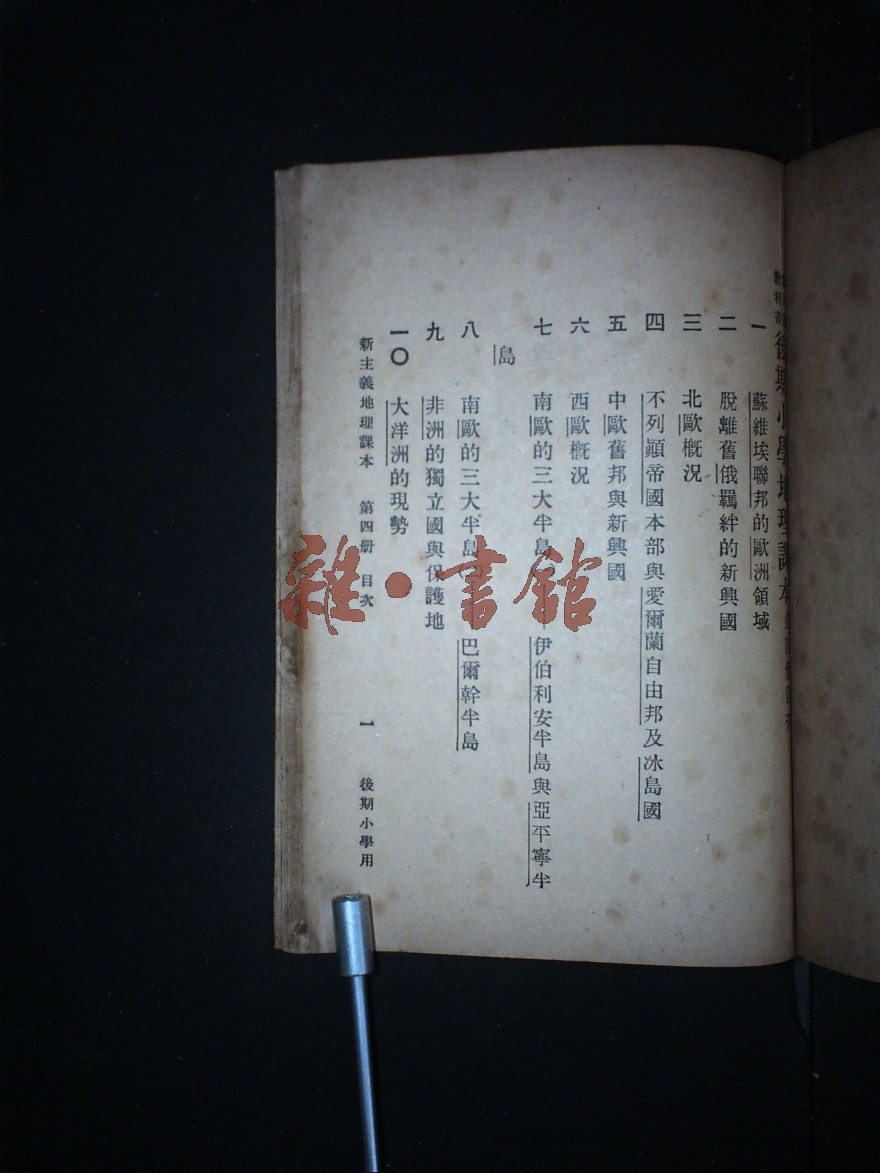 教科書
後期小學地理課本
一 蘇維埃聯邦的歐洲領域
二 脫離舊俄羈絆的新興國
三 北歐概況
四 不列顚帝國本部與愛爾蘭自由邦及冰島國
五 中歐舊邦與新興國
六 西歐概況
七 南歐的三大半島 伊伯利安半島與亞平寧半
島
八 南歐的三大半島 巴爾幹半島
九 非洲的獨立國與保護地
一〇 大洋洲的現勢
新主義地理課本 第四册 目次 一 後期小學用
雜·書館